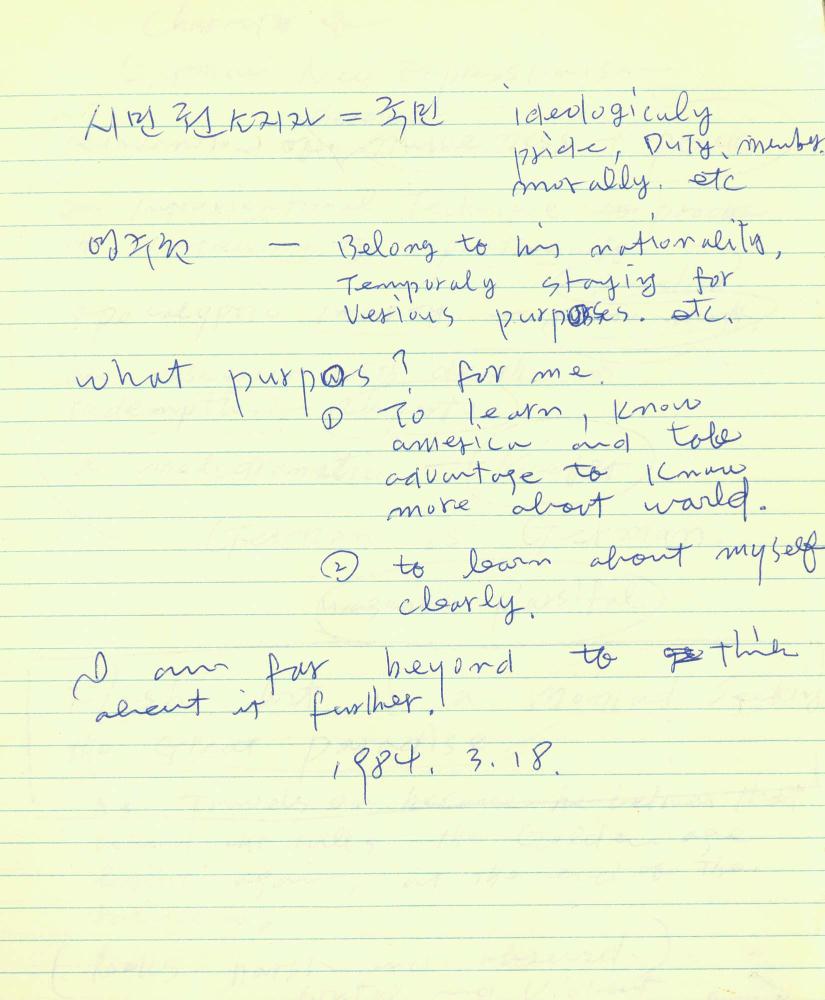 시민권 소지자 = 국민 ideologicaly
pride, DUTY, member
morally. etc
영주권 — Belong to his nationality,
Temporaly staying for
Verious purposes. etc.
what purpos? for me.
① To learn, know
america and take
advantage to Know
more about world.
② to learn about myself
clearly.
I am far beyond to think
about it further.
1984. 3. 18.